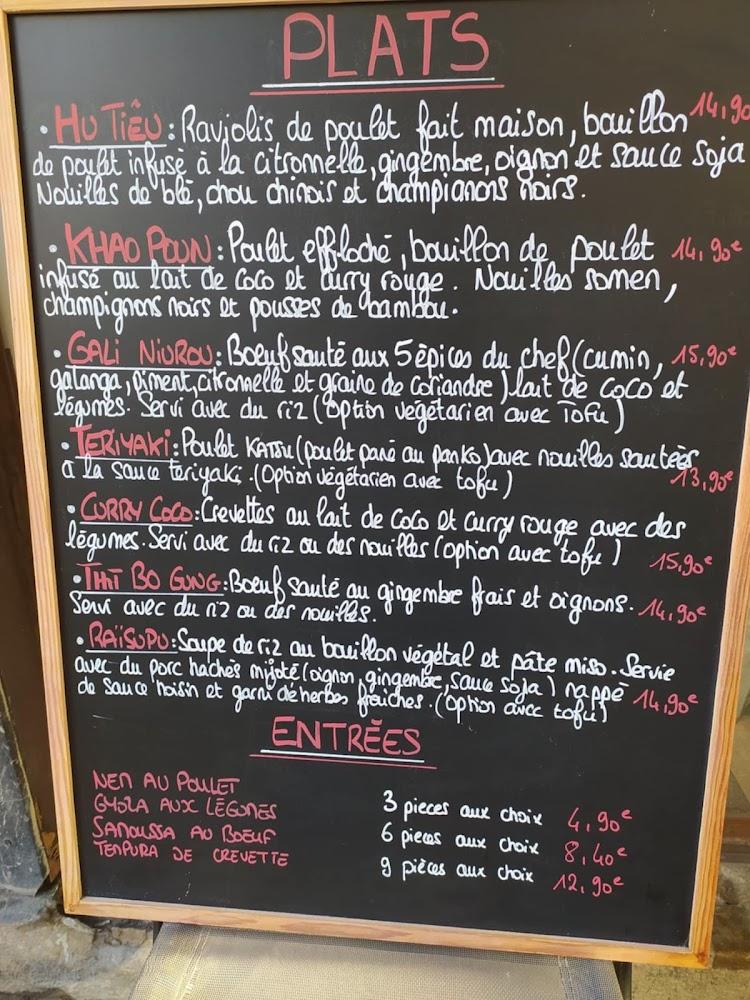 PLATS
• HU TIÊU : Raviolis de poulet fait maison, bouillon 14,90
de poulet infusé à la citronnelle, gingembre, oignon et sauce soja
Nouilles de blé, chou chinois et champignons noirs.
• KHAO POUN : Poulet effiloché, bouillon de poulet 14,90€
infusé au lait de coco et curry rouge. Nouilles somen,
champignons noirs et pousses de bambou.
• GALI NIUROU : Boeuf sauté aux 5 épices du chef (cumin, 15,90€
galanga, piment, citronnelle et graine de coriandre) lait de coco et
légumes. Servi avec du riz (option végétarien avec TOFU)
• TERIYAKI : Poulet KATSU (poulet pané au panko) avec nouilles sautées
à la sauce teriyaki. (Option végétarien avec tofu) 13,90€
• CURRY COCO : Crevettes au lait de coco et curry rouge avec des
légumes. Servi avec du riz ou des nouilles (option avec tofu) 15,90€
• THIT BO GUNG : Boeuf sauté au gingembre frais et oignons. 14,90€
Servi avec du riz ou des nouilles.
• RAÏSUPU : Soupe de riz au bouillon végétal et pâte miso. Servie
avec du porc hachés mijoté (oignon, gingembre, sauce soja) nappé 14,90€
de sauce hoisin et garni de herbes fraiches. (option avec tofu)
ENTRÉES
NEM AU POULET
GYOZA AUX LÉGUMES 3 pieces aux choix 4,90€
SAMOUSSA AU BOEUF 6 pieces aux choix 8,40€
TEMPURA DE CREVETTE 9 pièces aux choix 12,90€